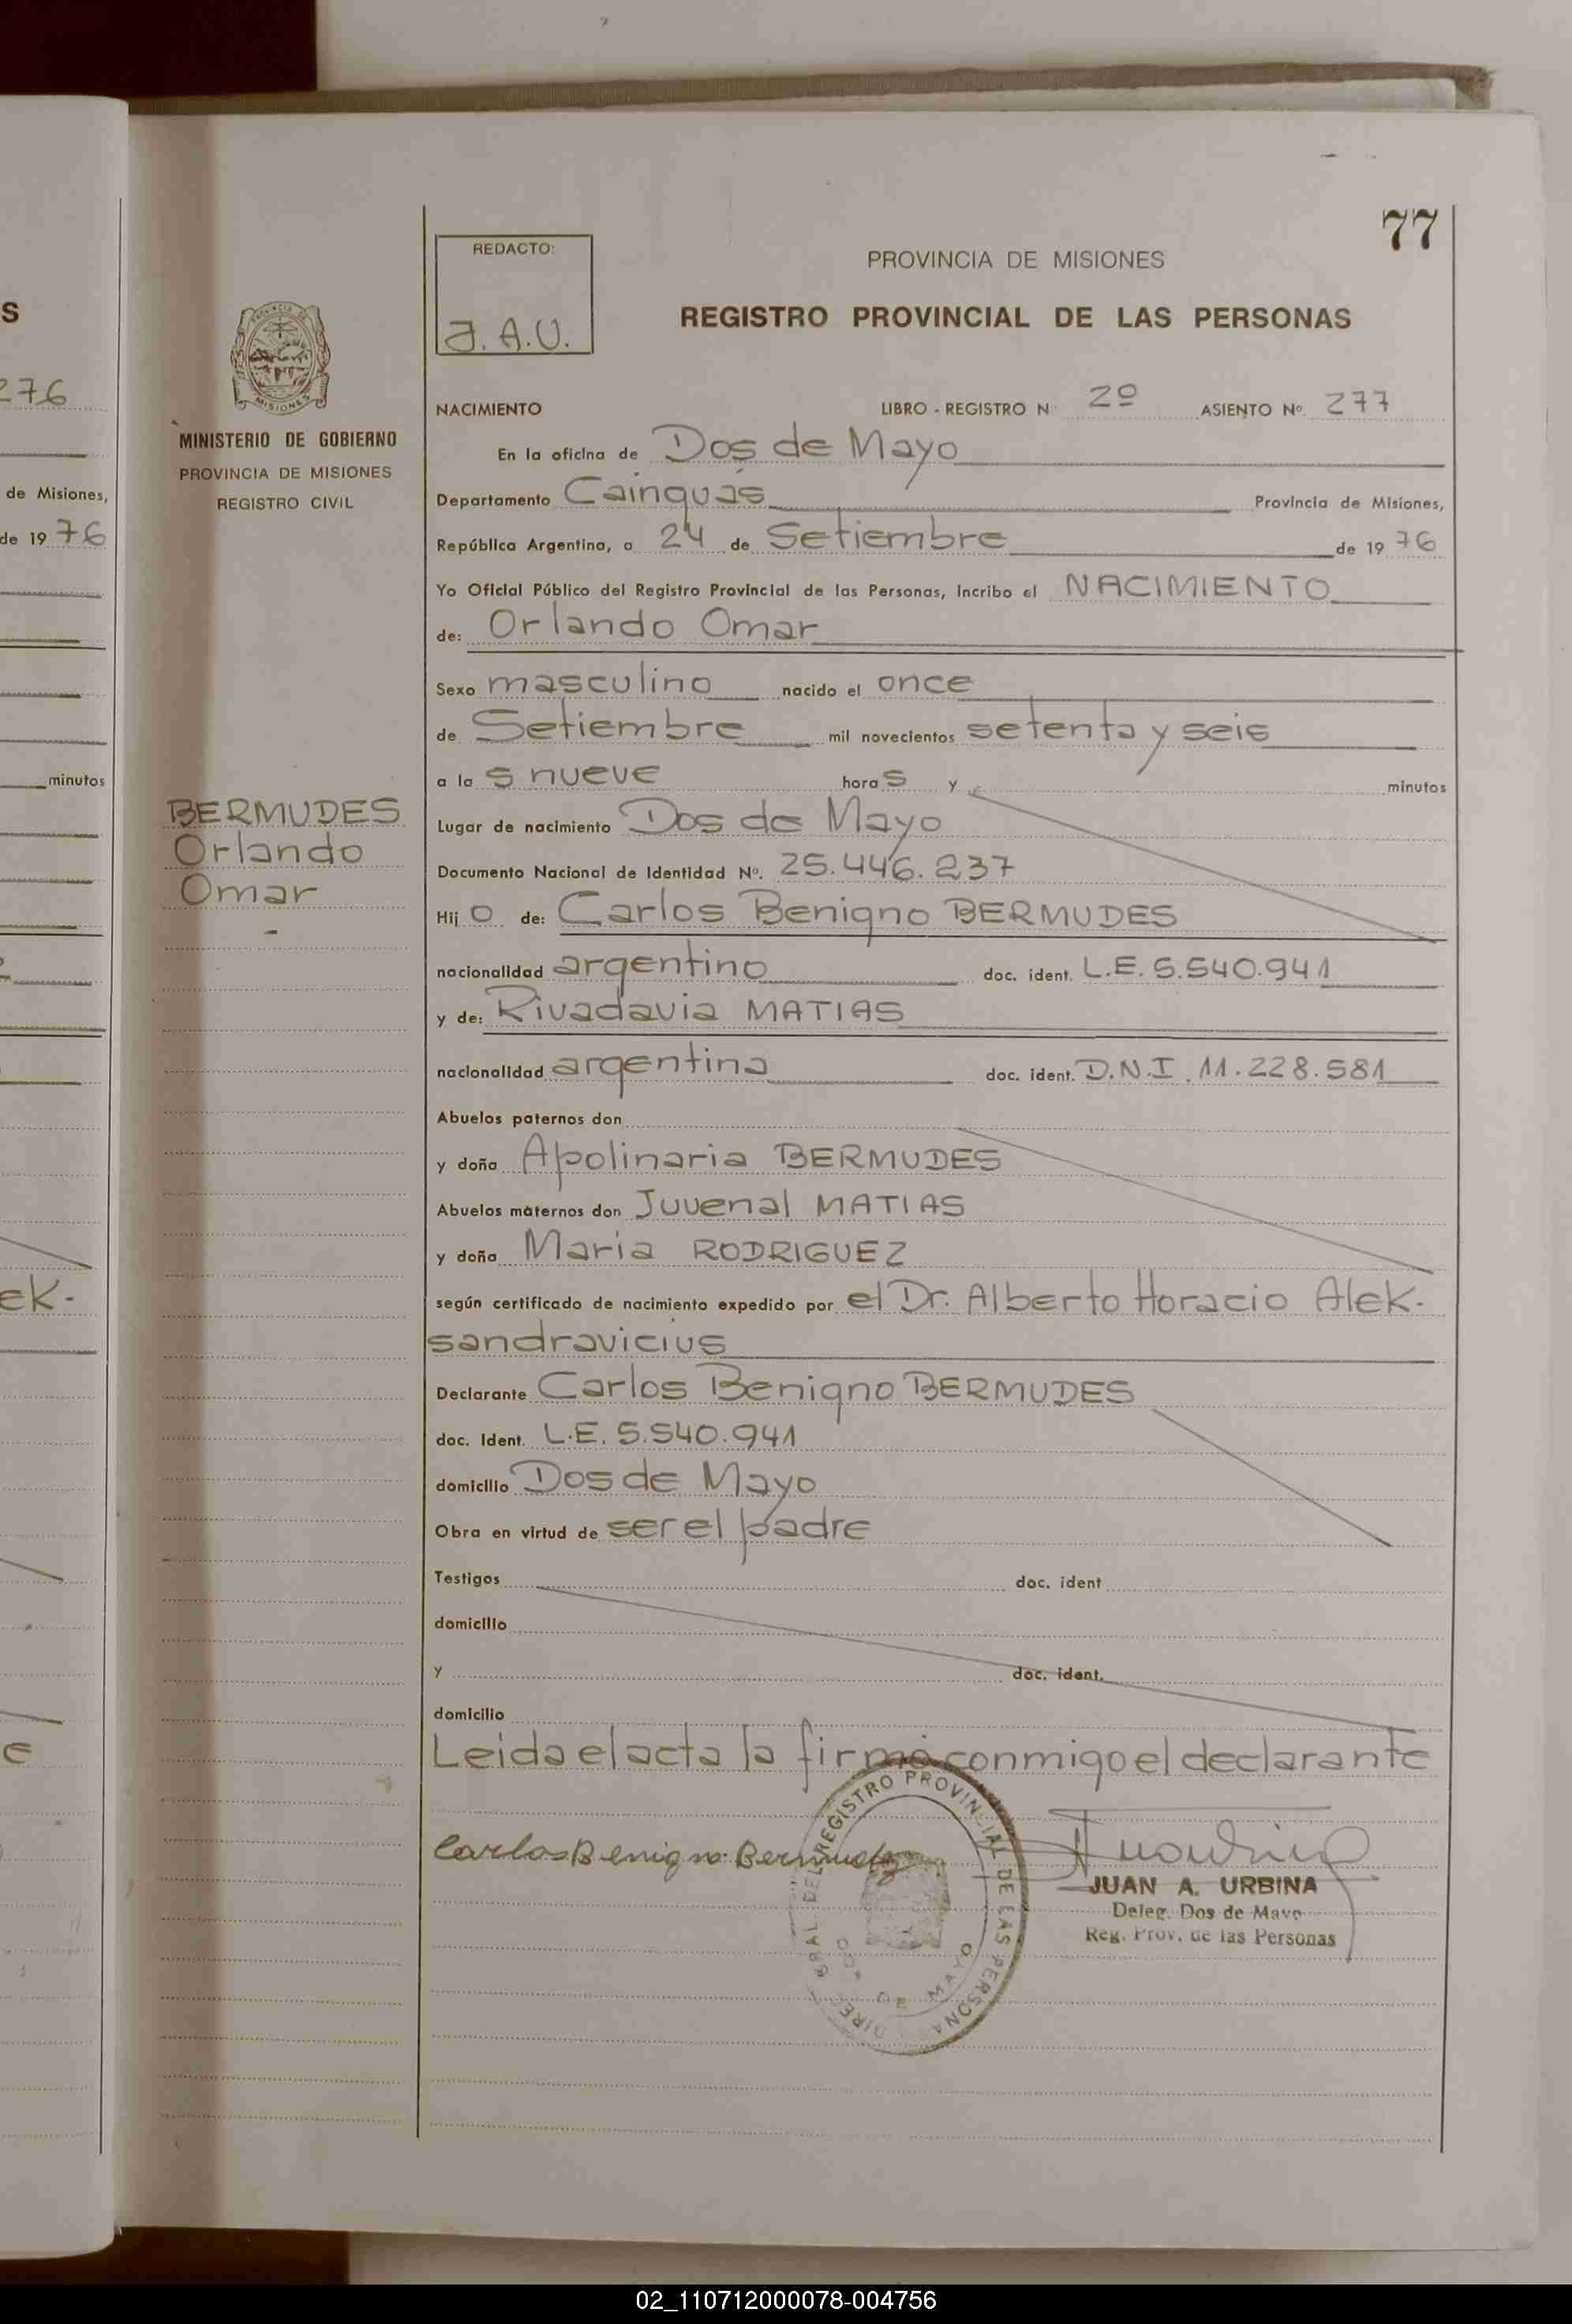 77
REDACTO:
J.A.U.
PROVINCIA DE MISIONES
REGISTRO PROVINCIAL DE LAS PERSONAS
S
276
de Misiones,
de 19 76
minutos
ek-
e
MISIONES
MINISTERIO DE GOBIERNO
PROVINCIA DE MISIONES
REGISTRO CIVIL
BERMUDES
Orlando
Omar
-
NACIMIENTO LIBRO - REGISTRO N 2º ASIENTO Nº. 277
En la oficina de Dos de Mayo
Departamento Cainguás Provincia de Misiones,
República Argentina, a 24 de Setiembre de 19 76
Yo Oficial Público del Registro Provincial de las Personas, incribo el NACIMIENTO
de: Orlando Omar
Sexo masculino nacido el once
de Setiembre mil novecientos setenta y seis
a la s nueve hora s y minutos
Lugar de nacimiento Dos de Mayo
Documento Nacional de Identidad Nº. 25.446.237
Hij o de: Carlos Benigno BERMUDES
nacionalidad argentino doc. ident. L.E. 5.540.941
y de: Rivadavia MATIAS
nacionalidad argentina doc. ident. D.N.I. 11.228.581
Abuelos paternos don
y doña Apolinaria BERMUDES
Abuelos maternos don Juvenal MATIAS
y doña Maria RODRIGUEZ
según certificado de nacimiento expedido por el Dr. Alberto Horacio Alek-
sandravicius
Declarante Carlos Benigno BERMUDES
doc. Ident. L.E. 5.540.941
domicilio Dos de Mayo
Obra en virtud de ser el padre
Testigos doc. ident
domicilio
y doc. ident.
domicilio
Leida el acta la firmó conmigo el declarante
Carlos Benigno Bermudez
DIREC GRAL DEL REGISTRO PROVINCIAL DE LAS PERSONAS
DOS DE MAYO
JUAN A. URBINA
Deleg. Dos de Mayo
Reg. Prov. de las Personas
02_110712000078-004756